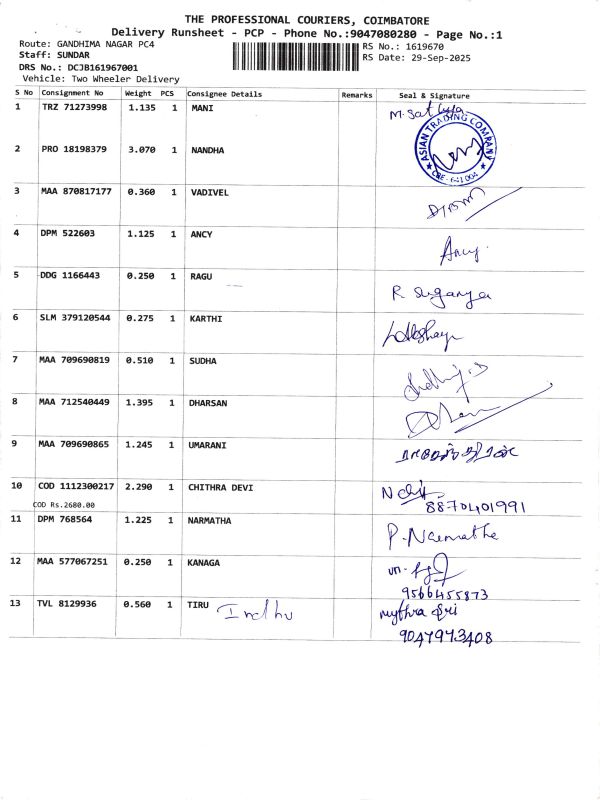 THE PROFESSIONAL COURIERS, COIMBATORE
Delivery Runsheet - PCP - Phone No.:9047080280 - Page No.:1
Route: GANDHIMA NAGAR PC4
RS No.: 1619670
Staff: SUNDAR
RS Date: 29-Sep-2025
DRS No.: DCJB161967001
Vehicle: Two Wheeler Delivery
S No Consignment No Weight PCS Consignee Details Remarks Seal & Signature
1 TRZ 71273998 1.135 1 MANI
ASIAN TRADING COMPANY
2 PRO 18198379 3.070 1 NANDHA
3 MAA 870817177 0.360 1 VADIVEL
4 DPM 522603 1.125 1 ANCY Ancy.
5 DDG 1166443 0.250 1 RAGU R Suganya
6 SLM 379120544 0.275 1 KARTHI
7 MAA 709690819 0.510 1 SUDHA
8 MAA 712540449 1.395 1 DHARSAN
9 MAA 709690865 1.245 1 UMARANI
10 COD 1112300217 2.290 1 CHITHRA DEVI
COD Rs.2680.00 8870401991
11 DPM 768564 1.225 1 NARMATHA P. Narmatha
12 MAA 577067251 0.250 1 KANAGA
9566455873
13 TVL 8129936 0.560 1 TIRU Indhu mythra sri
9047973408